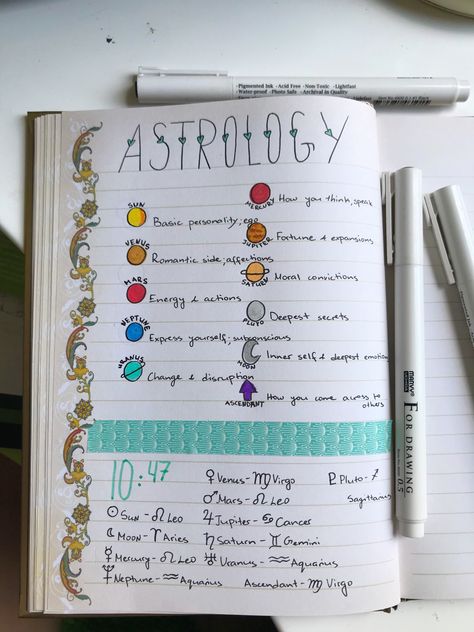 • Pigmented Ink • Acid Free • Non-Toxic • Lightfast
• Water-proof • Photo Safe • Archival in Quality
ASTROLOGY
SUN
Basic personality, ego
VENUS
Romantic side, affections
MARS
Energy & actions
NEPTUNE
Express yourself, subconscious
URANUS
Change & disruption
MERCURY
How you think, speak
JUPITER
Fortune & expansions
SATURN
Moral convictions
PLUTO
Deepest secrets
MOON
Inner self & deepest emotion
ASCENDANT
How you come across to
others
10:47
♀ Venus - ♍ Virgo
♂ Mars - ♌ Leo
☉ Sun - ♌ Leo
♃ Jupiter - ♋ Cancer
☾ Moon - ♈ Aries
♄ Saturn - ♊ Gemini
☿ Mercury - ♌ Leo
♅ Uranus - ♒ Aquarius
♆ Neptune - ♒ Aquarius
Ascendant - ♍ Virgo
♇ Pluto - ♐
Sagittarius
FOR DRAWING
0.5